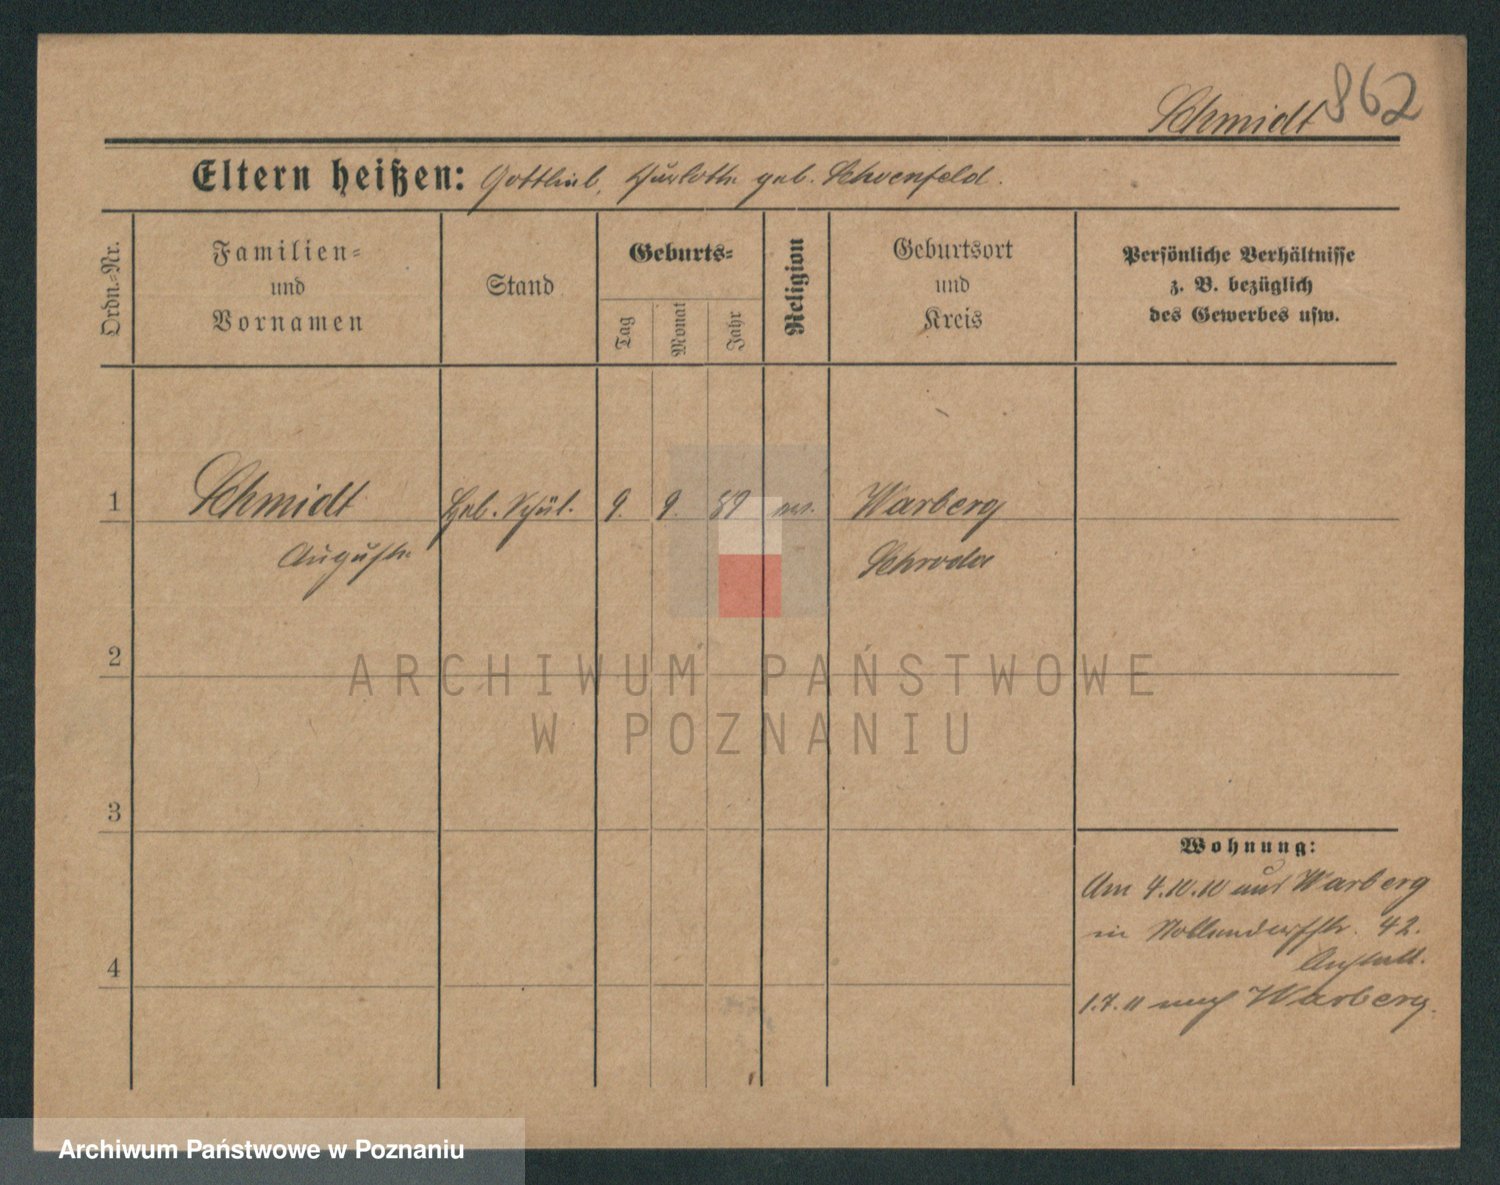 862
Schmidt
Eltern heißen: Gottlieb, Charlotte geb. Schoenfeld.
Ordn.-Nr.
Familien-
und
Vornamen
Stand
Geburts-
Tag
Monat
Jahr
Religion
Geburtsort
und
Kreis
Persönliche Verhältnisse
z. B. bezüglich
des Gewerbes usw.
1 Schmidt Heb. Schül. 9. 9. 89 Warberg
Auguste Schroda
2
ARCHIWUM PAŃSTWOWE
W POZNANIU
3
Wohnung:
Am 4.10.10 aus Warberg
in 42.
4
Anstalt.
1.7.11 nach Warberg.
Archiwum Państwowe w Poznaniu